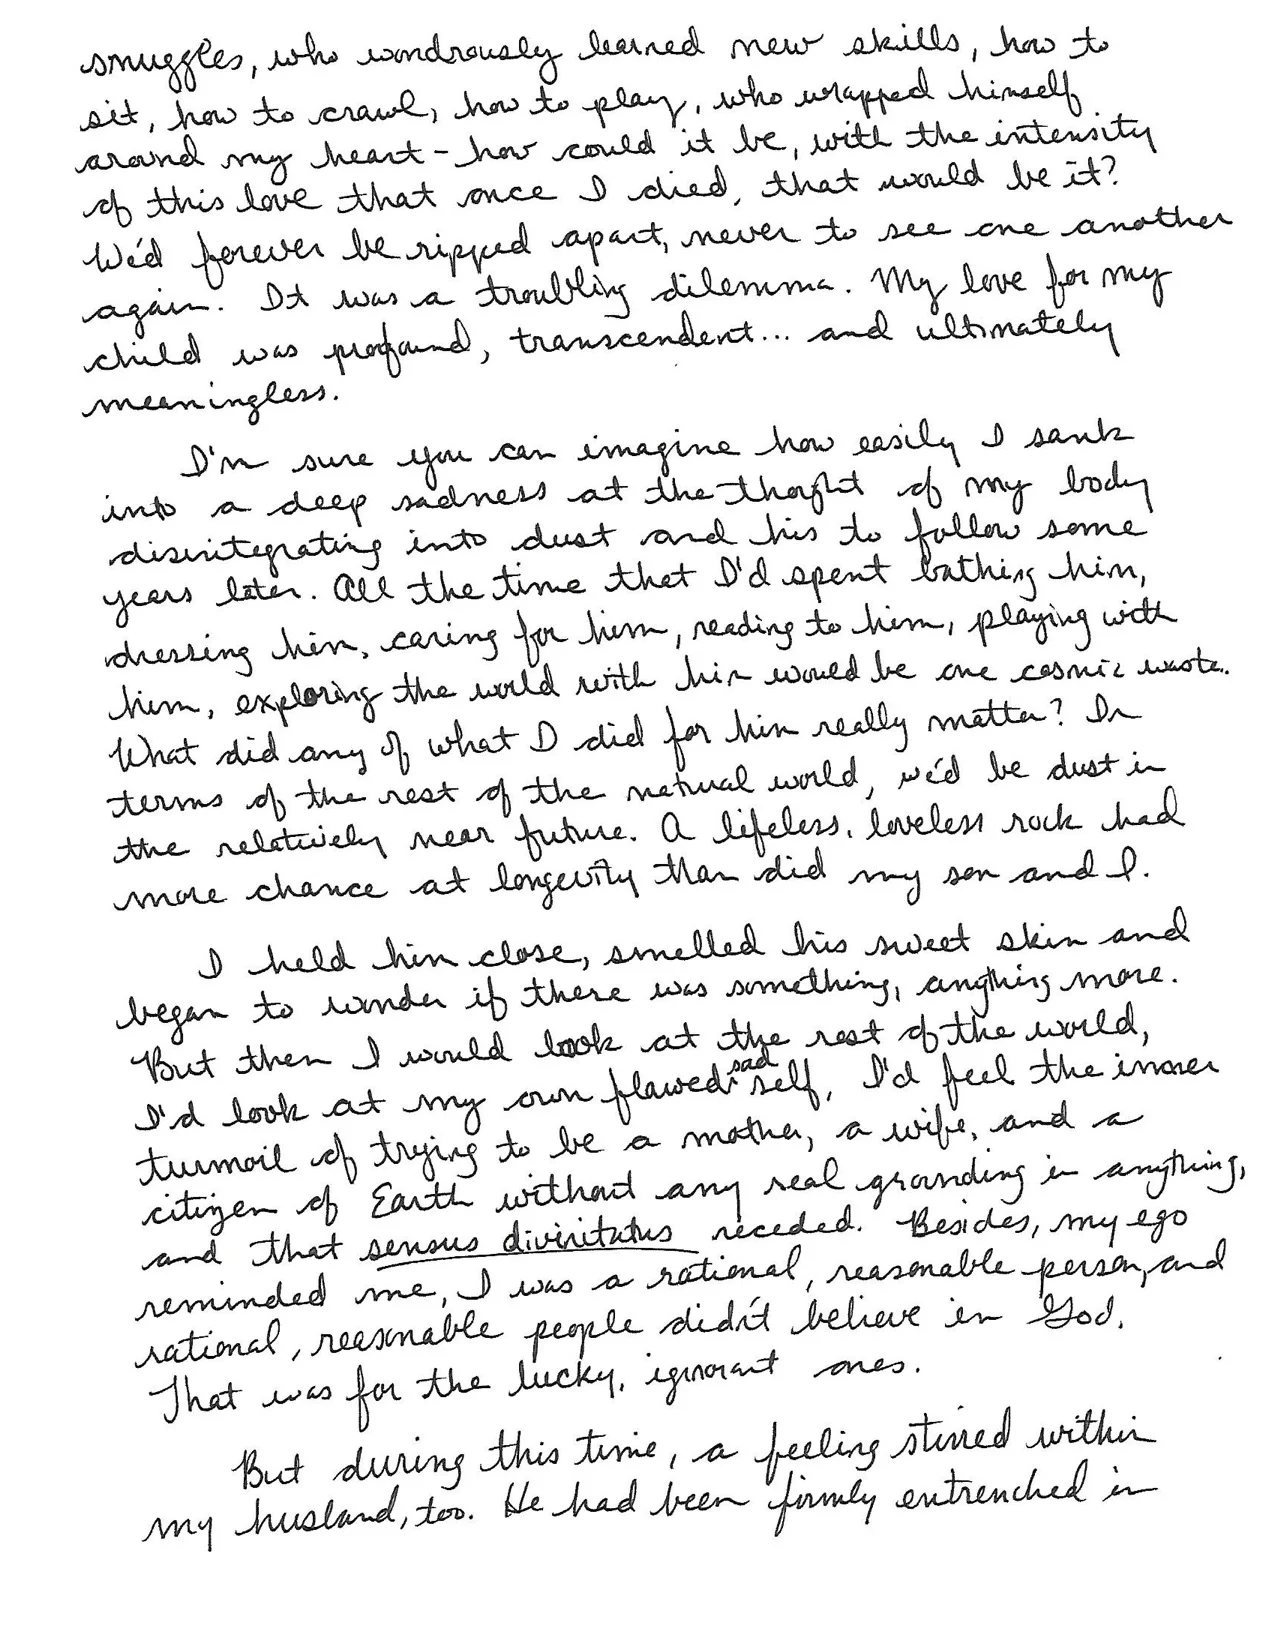 snuggles, who wondrously learned new skills, how to
sit, how to crawl, how to play, who wrapped himself
around my heart - how could it be, with the intensity
of this love that once I died, that would be it?
We'd forever be ripped apart, never to see one another
again. It was a troubling dilemma. My love for my
child was profound, transcendent... and ultimately
meaningless.
I'm sure you can imagine how easily I sank
into a deep sadness at the thought of my body
disintegrating into dust and his to follow some
years later. All the time that I'd spent bathing him,
dressing him, caring for him, reading to him, playing with
him, exploring the world with him would be one cosmic waste.
What did any of what I did for him really matter? In
terms of the rest of the natural world, we'd be dust in
the relatively near future. A lifeless, loveless rock had
more chance at longevity than did my son and I.
I held him close, smelled his sweet skin and
began to wonder if there was something, anything more.
But then I would look at the rest of the world,
I'd look at my own flawed, sad self, I'd feel the inner
turmoil of trying to be a mother, a wife, and a
citizen of Earth without any real grounding in anything,
and that sensus divinitatus receded. Besides, my ego
reminded me, I was a rational, reasonable person, and
rational, reasonable people didn't believe in God.
That was for the lucky, ignorant ones.
But during this time, a feeling stirred within
my husband, too. He had been firmly entrenched in